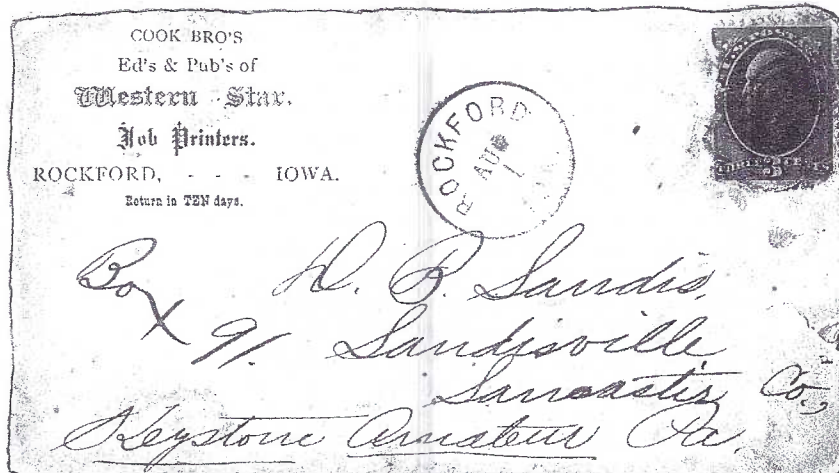 COOK BRO'S
Ed's & Pub's of
Western Star.
Job Printers.
ROCKFORD, - - - IOWA.
Return in TEN days.
ROCKFORD
AUG
1
Box
91.
D. B. Landis,
Landisville,
Lancaster Co.,
Keystone Amateur Pa.